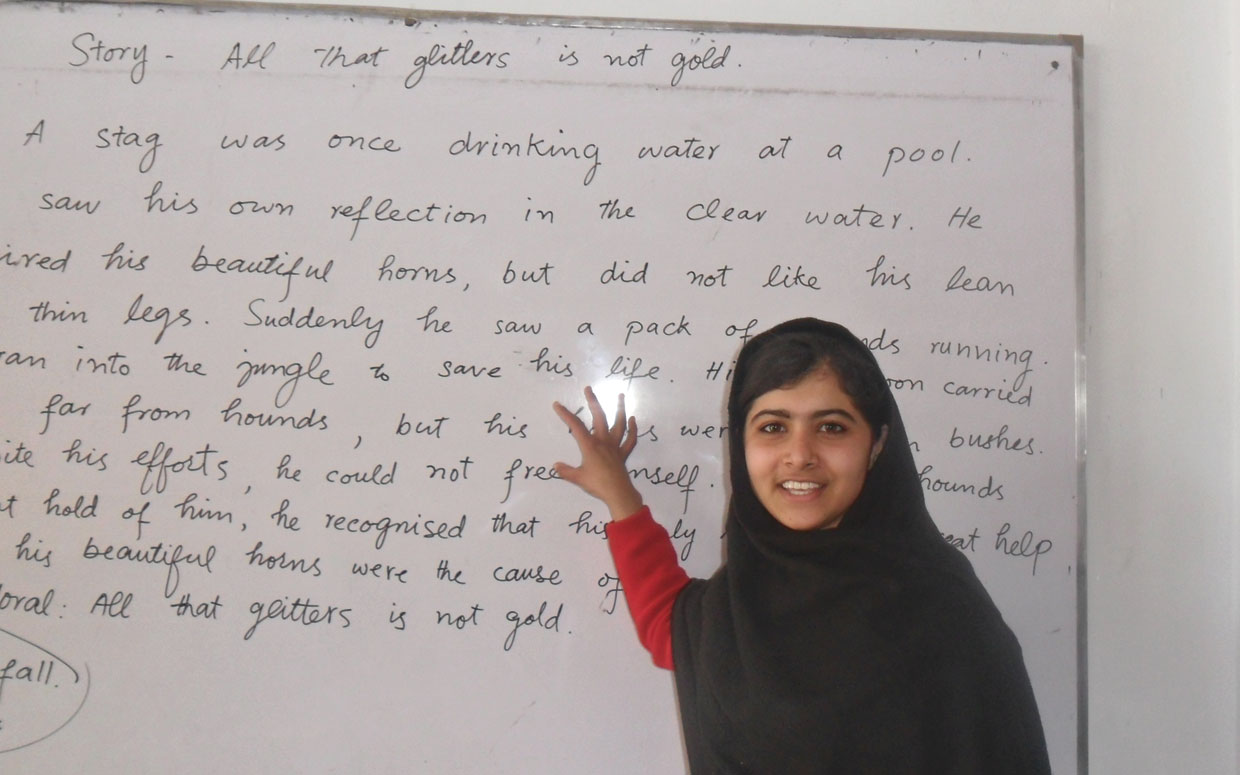 Story - All that glitters is not gold.
A stag was once drinking water at a pool.
saw his own reflection in the clear water. He
ired his beautiful horns, but did not like his lean
thin legs. Suddenly he saw a pack of nds running.
ran into the jungle to save his life. Hi oon carried
far from hounds, but his wer n bushes.
ite his efforts, he could not free mself. hounds
t hold of him, he recognised that his ly eat help
his beautiful horns were the cause of
oral: All that glitters is not gold.
fall.